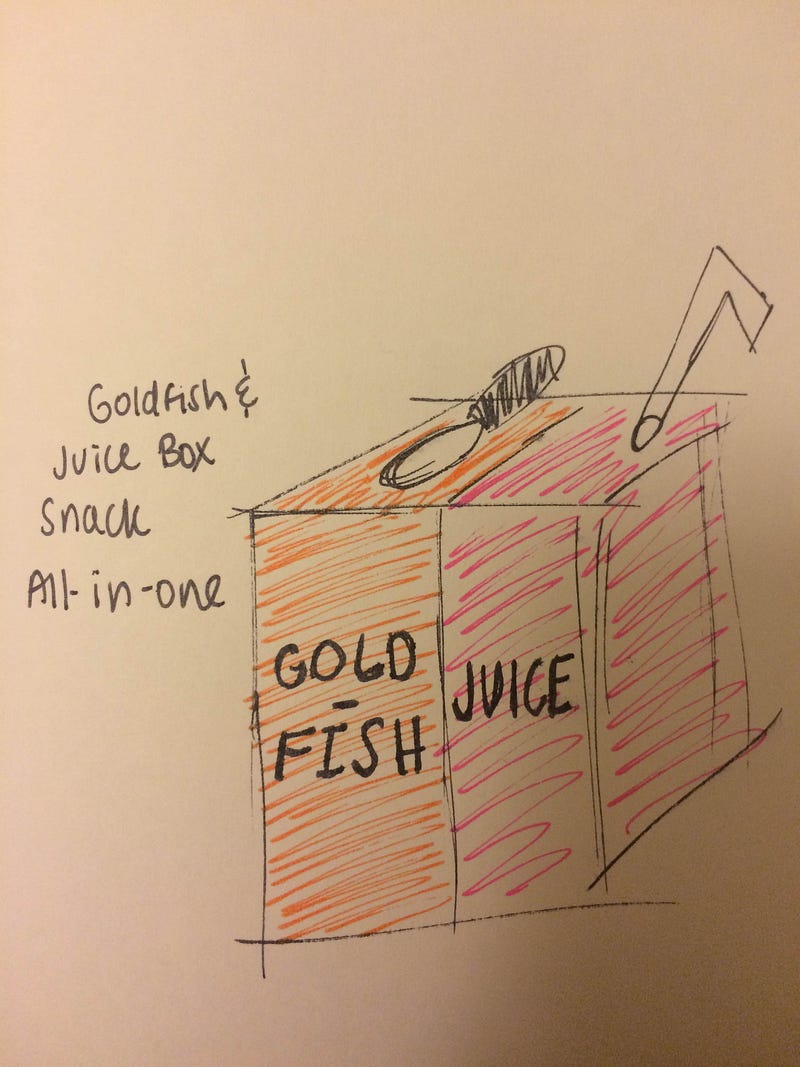 Goldfish &
Juice Box
Snack
All-in-one
GOLD
-
FISH
JUICE